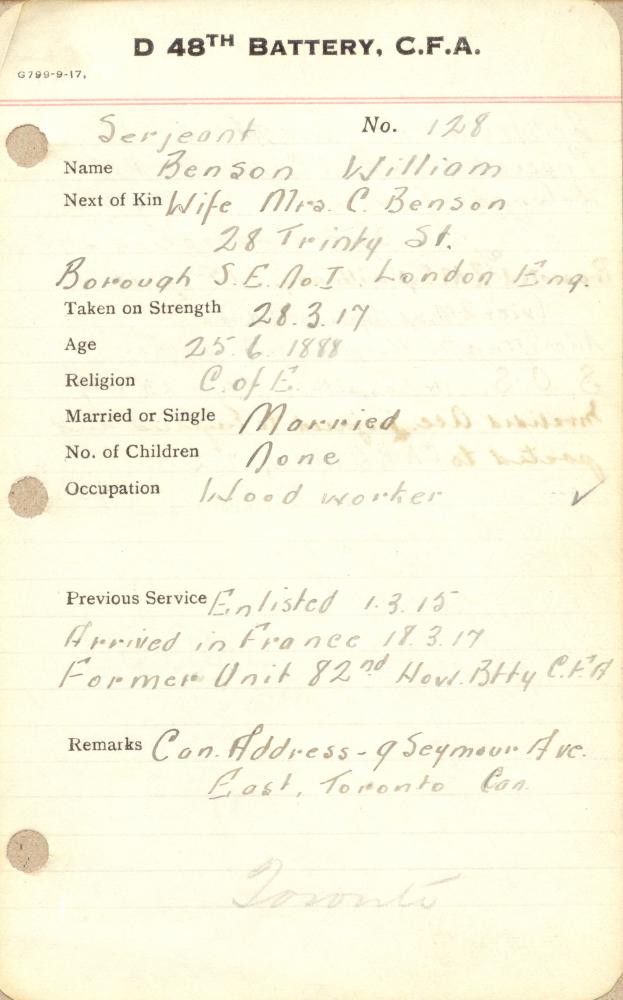 D 48TH BATTERY, C.F.A.
G799-9-17.
Serjeant No. 128
Name Benson William
Next of Kin Wife Mrs. C. Benson
28 Trinty St.
Borough S.E. No. I. London Eng.
Taken on Strength 28.3.17
Age 25.6.1888
Religion C. of E.
Married or Single Married
No. of Children None
Occupation Wood worker ✓
Previous Service Enlisted 1.3.15
Arrived in France 18.3.17
Former Unit 82nd How. Btty C.F.A
Remarks Can. Address - 9 Seymour Ave.
East, Toronto Can.
Toronto